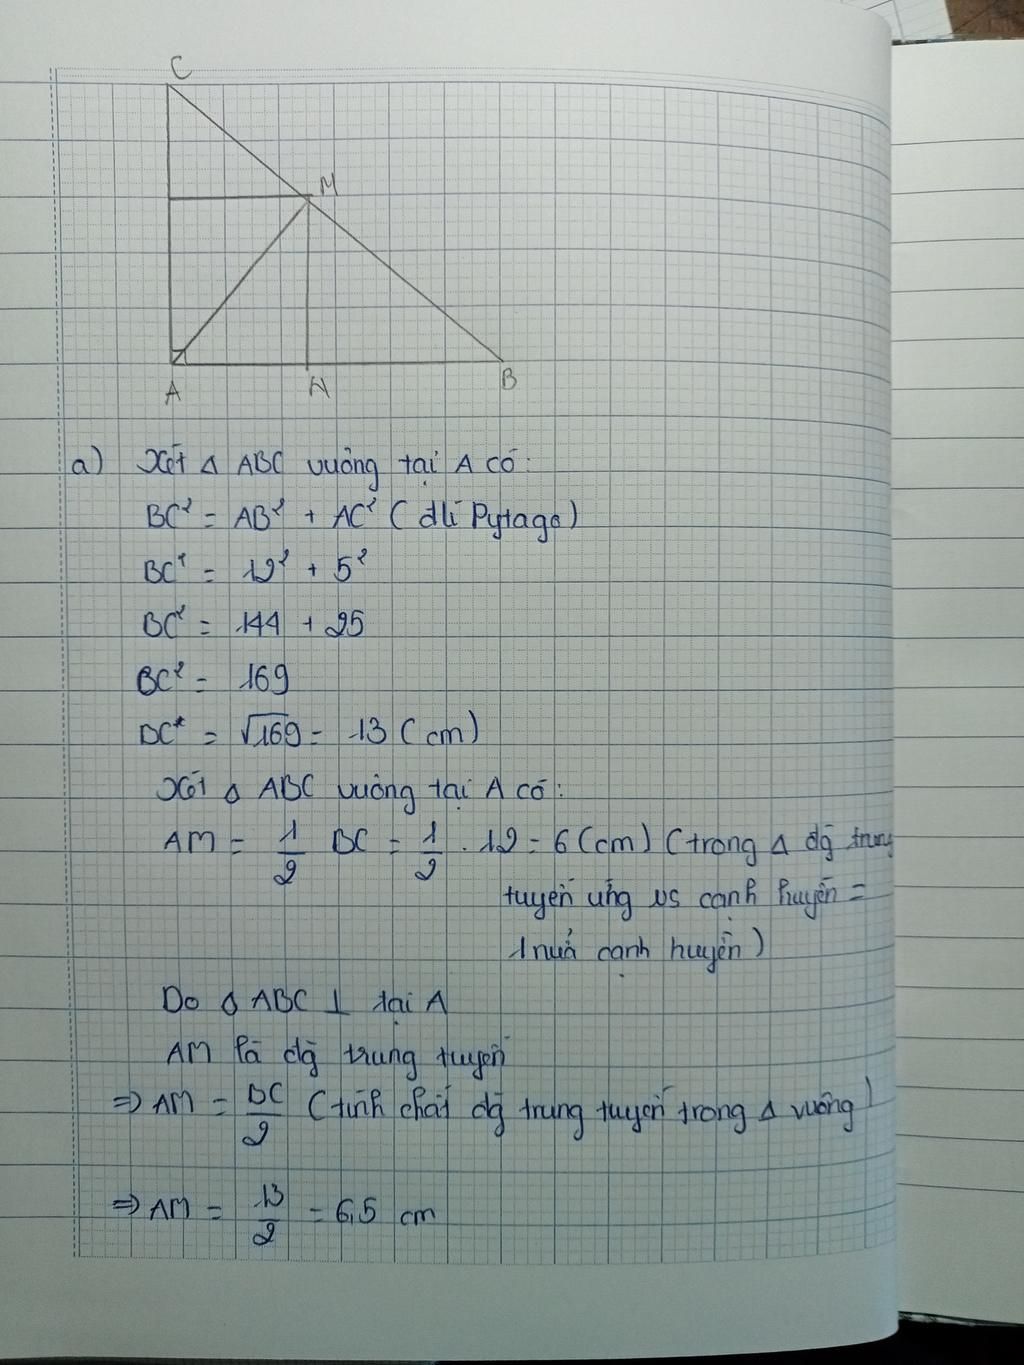 C
M
A
H
B
a) Xét Δ ABC vuông tại A có:
BC² = AB² + AC² (đlí Pytago)
BC² = 12² + 5²
BC² = 144 + 25
BC² = 169
BC = √169 = 13 (cm)
Xét Δ ABC vuông tại A có:
AM = 1/2 BC = 1/2 . 12 = 6 (cm) (trong Δ đg trung
tuyến ứng vs cạnh huyền =
1 nửa cạnh huyền)
Do Δ ABC ⊥ tại A
AM là đg trung tuyến
⇒ AM = BC/2 (tính chất đg trung tuyến trong Δ vuông)
⇒ AM = 13/2 = 6,5 cm